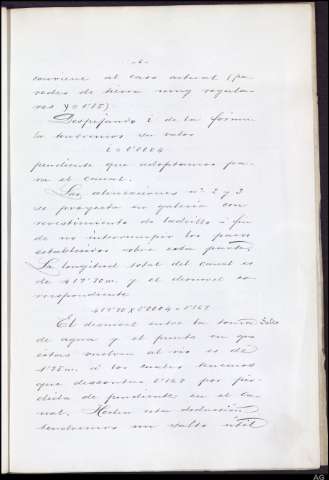 - 6 -
conviene al caso actual (pa-
redes de tierra muy regula-
res γ = 1'75).
Despejando i de la fórmu-
la tendremos su valor
i = 0'0004
pendiente que adoptamos pa-
ra el canal.
Las alineaciones nº 2 y 3
se proyecta en galería con
revestimiento de ladrillo á fin
de no interrumpir los pasos
establecidos sobre esta parte.
La longitud total del canal es
de 417'70 m. y el desnivel co-
rrespondiente
417'70 X 0'0004 = 0'167
El desnivel entre la toma
de agua y el punto en que
éstas vuelven al río es de
m. á los cuales tenemos
que descontar 0'167 por pér-
dida de pendiente en el ca-
nal. Hecha esta deducción
tendremos un salto útil
AG